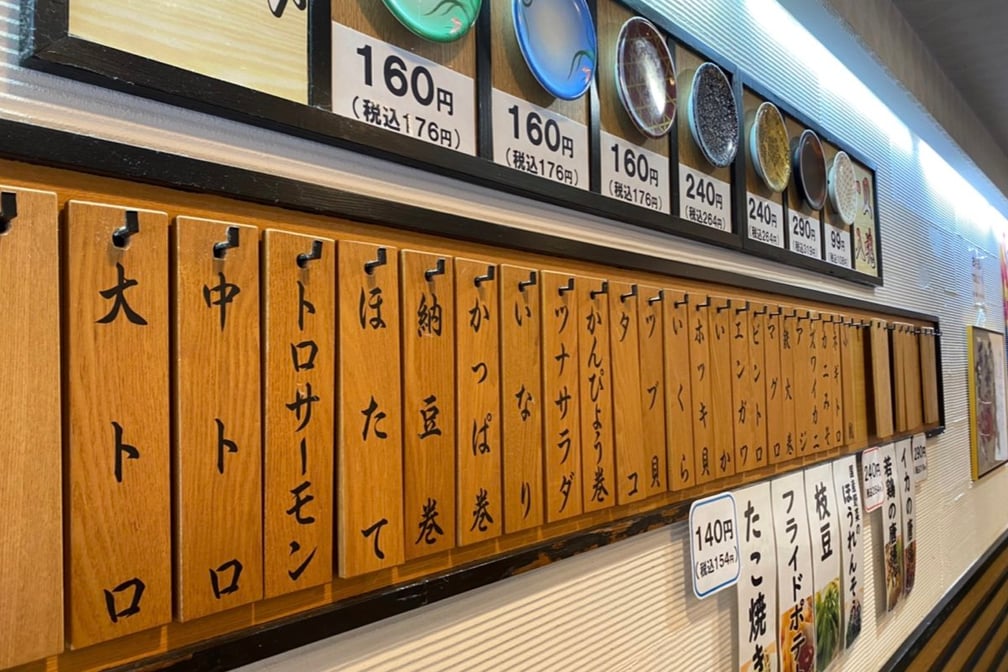 160円
(税込176円)
160円
(税込176円)
160円
(税込176円)
240円
(税込264円)
240円
(税込264円)
290円
(税込319円)
99円
大トロ
中トロ
トロサーモン
ほたて
納豆巻
かっぱ巻
いなり
ツナサラダ
かんぴょう巻
タコ
ツブ貝
いくら
ホッキ貝
いか
エンガワ
ビントロ
マグロ
鉄火巻
アジ
ズワイカニ
カニみそ
ネギトロ
140円
(税込154円)
たこ焼き
フライドポテ
枝豆
ほうれんそう
240円
若鶏の唐
イカの唐
290円